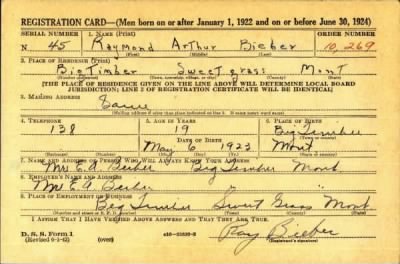 REGISTRATION CARD—(Men born on or after January 1, 1922 and on or before June 30, 1924)
SERIAL NUMBER 1. NAME (Print) ORDER NUMBER
N 45 Raymond Arthur Bieber 10,269
(First) (Middle) (Last)
2. PLACE OF RESIDENCE (Print)
Big Timber Sweetgrass Mont
[THE PLACE OF RESIDENCE GIVEN ON THE LINE ABOVE WILL DETERMINE LOCAL BOARD
JURISDICTION; LINE 2 OF REGISTRATION CERTIFICATE WILL BE IDENTICAL]
3. MAILING ADDRESS
Same
4. TELEPHONE 5. AGE IN YEARS 6. PLACE OF BIRTH
138 19 Big Timber
DATE OF BIRTH
May 6 1923 Mont
7. NAME AND ADDRESS OF PERSON WHO WILL ALWAYS KNOW YOUR ADDRESS
Mrs E.A. Bieber Big Timber Mont
8. EMPLOYER'S NAME AND ADDRESS
Mrs E.A. Bieber " "
9. PLACE OF EMPLOYMENT OR BUSINESS
Big Timber Sweet Grass Mont
I AFFIRM THAT I HAVE VERIFIED ABOVE ANSWERS AND THAT THEY ARE TRUE.
D. S. S. Form 1
(Revised 6-1-42) (over) Ray Bieber
(Registrant's signature)